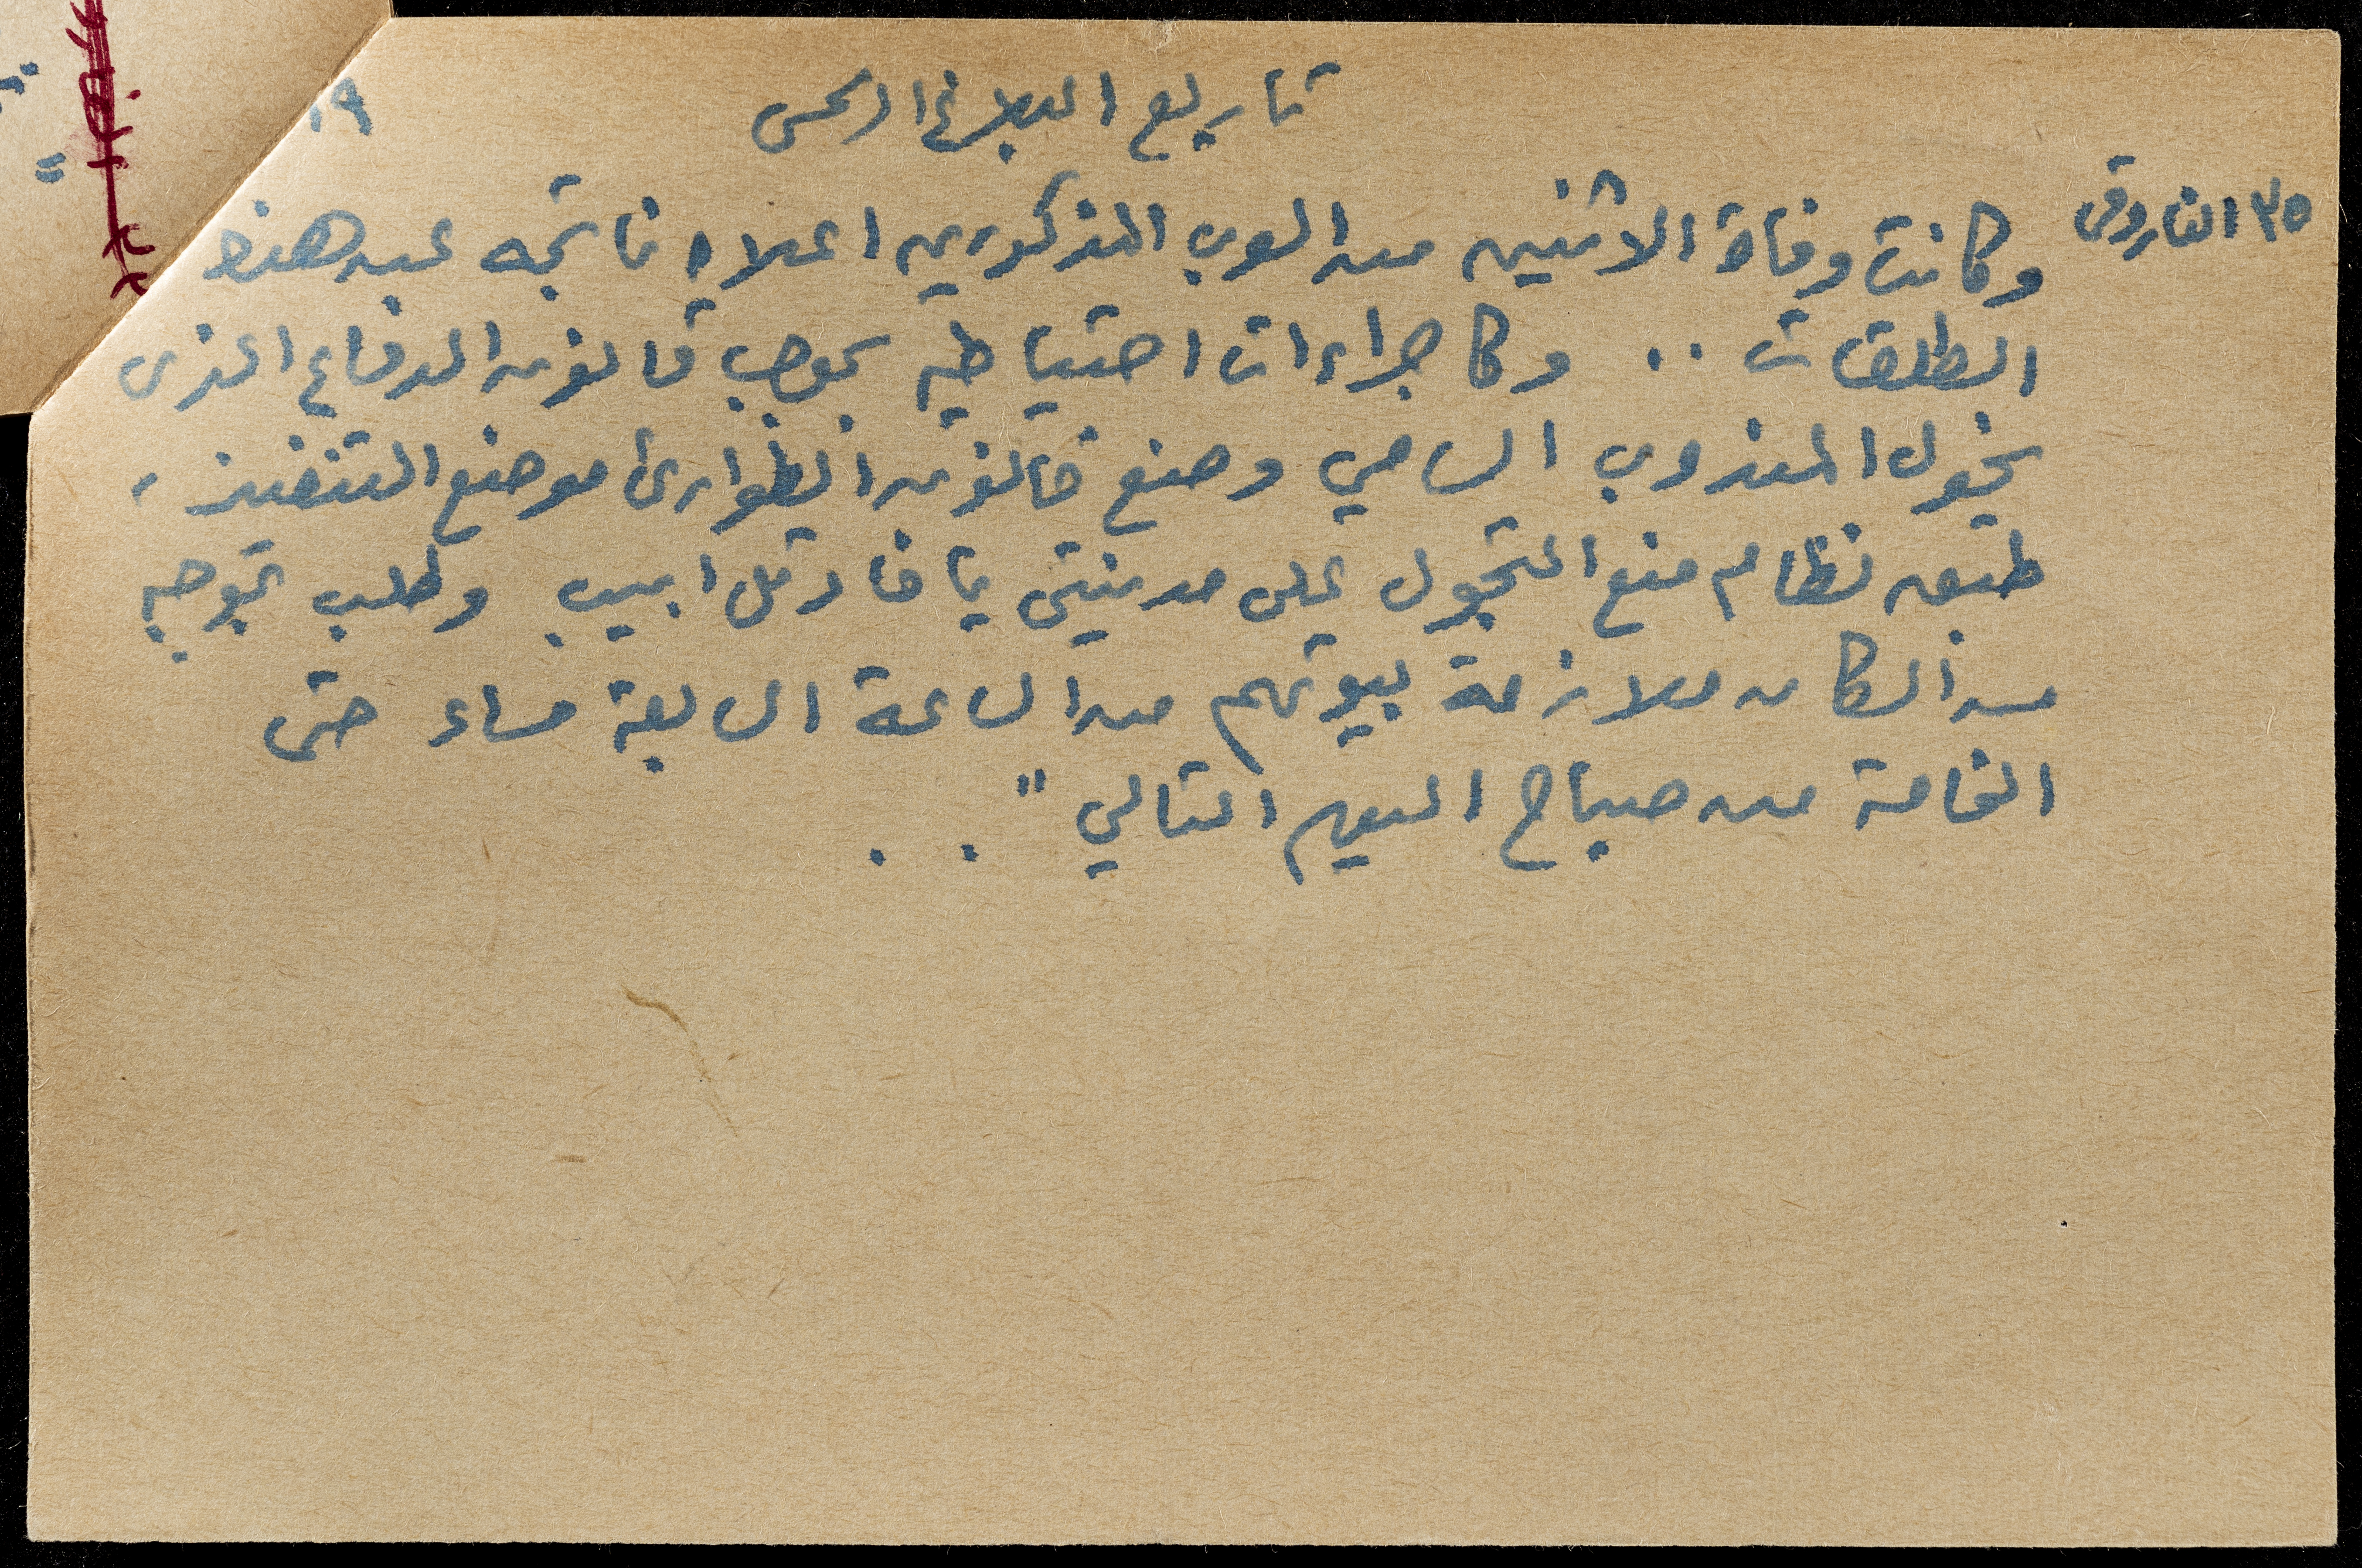 تاريع البلاغ الرسمى
١٩
٣٥ الفاروقى
وكانت وفاة الاثنين من العرب المذكورين اعلاه ناتجه عن هذه
الطلقات .. وكاجراءات احتياطيه بموجب قانون الدفاع الذى
يخول المندوب السامي وضع قانون الطوارئ موضع التنفيذ ،
طبق نظام منع التجول على مدينتى يافا وتل ابيب وطلب بموجبه
من السكان ملازمة بيوتهم من الساعة السابعة مساء حتى
الخامسة من صباح اليوم التالي " . .